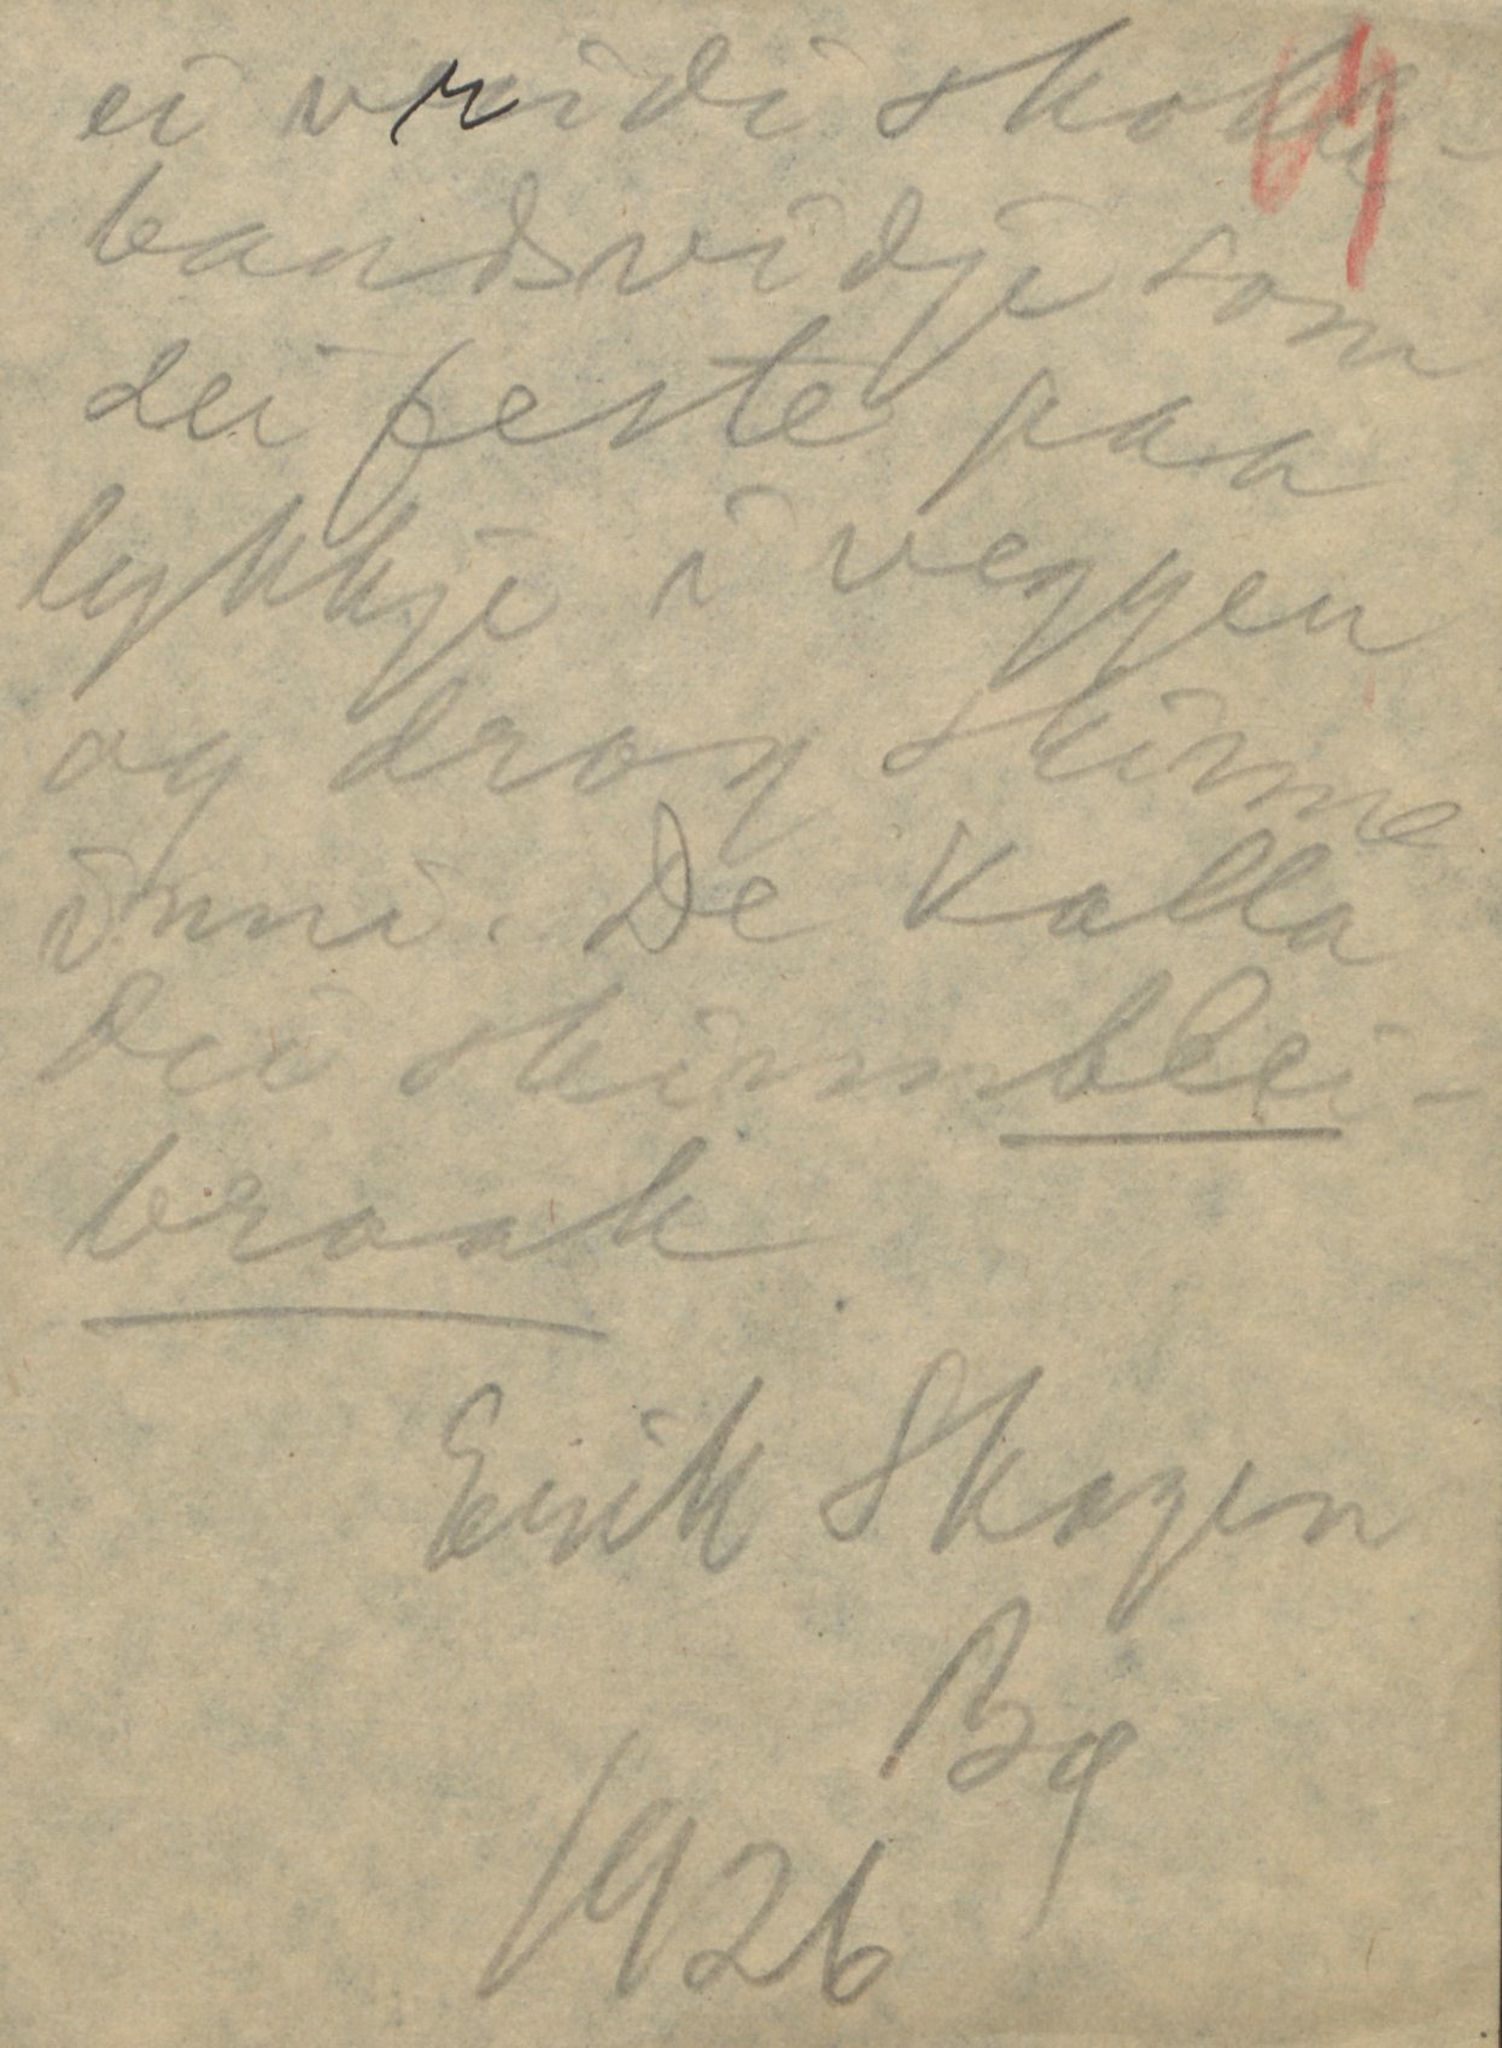 ei vridi skokle-
bandsvidje som
dei feste paa
lykkje i veggen
og drog skinne
inni. De kalla
dei skinnblei-
braak
Erik Skogen
Bø
1926